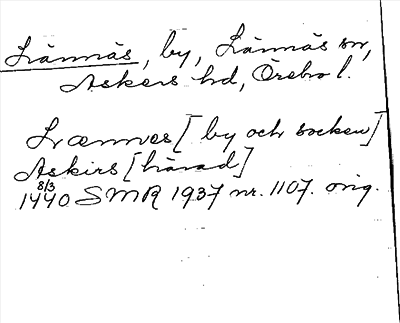 Lännäs, by, Lännäs sn,
Askers hd, Örebro l.
Lænnes [by och socken]
Askirs [härad]
1440 8/3 SMR 1937 nr. 1107. orig.